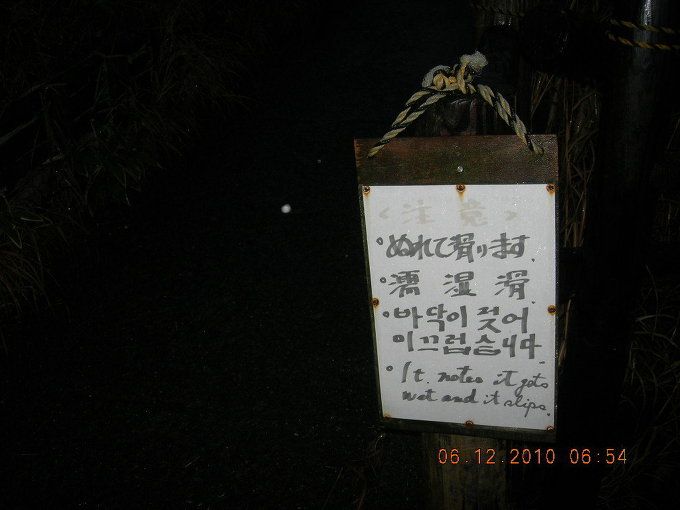 <注意>
・ぬれて滑ります.
・濡湿滑.
・바닥이 젖어
미끄럽습니다.
・It notes it gets
wet and it slips.
06.12.2010 06:54